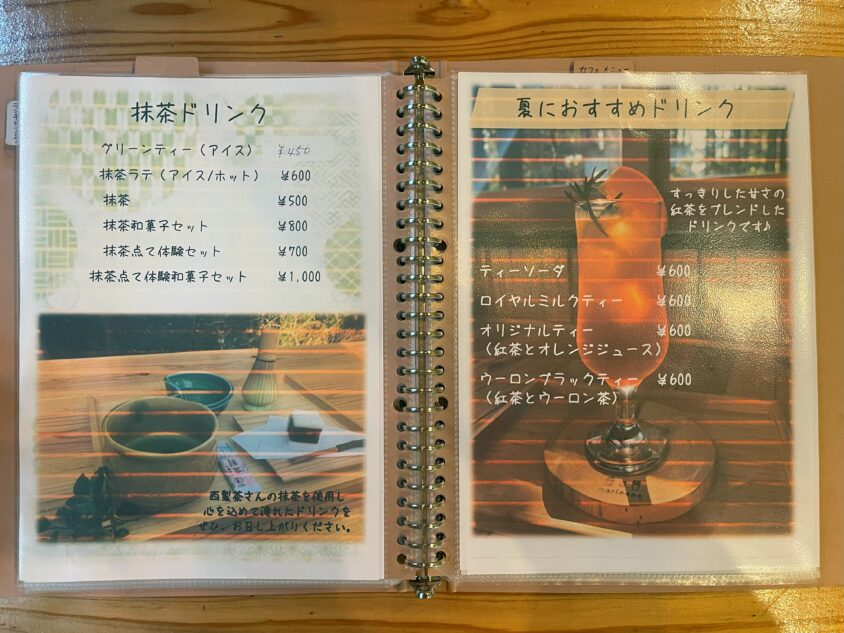 抹茶ドリンク
グリーンティー（アイス） ¥450
抹茶ラテ（アイス/ホット） ¥600
抹茶 ¥500
抹茶和菓子セット ¥800
抹茶点て体験セット ¥700
抹茶点て体験和菓子セット ¥1,000
西製茶さんの抹茶を使用し
心を込めて淹れたドリンクを
ぜひ、お召し上がりください。
カフェメニュー
夏におすすめドリンク
すっきりした甘さの
紅茶をブレンドした
ドリンクです♪
ティーソーダ ¥600
ロイヤルミルクティー ¥600
オリジナルティー ¥600
（紅茶とオレンジジュース）
ウーロンブラックティー ¥600
（紅茶とウーロン茶）